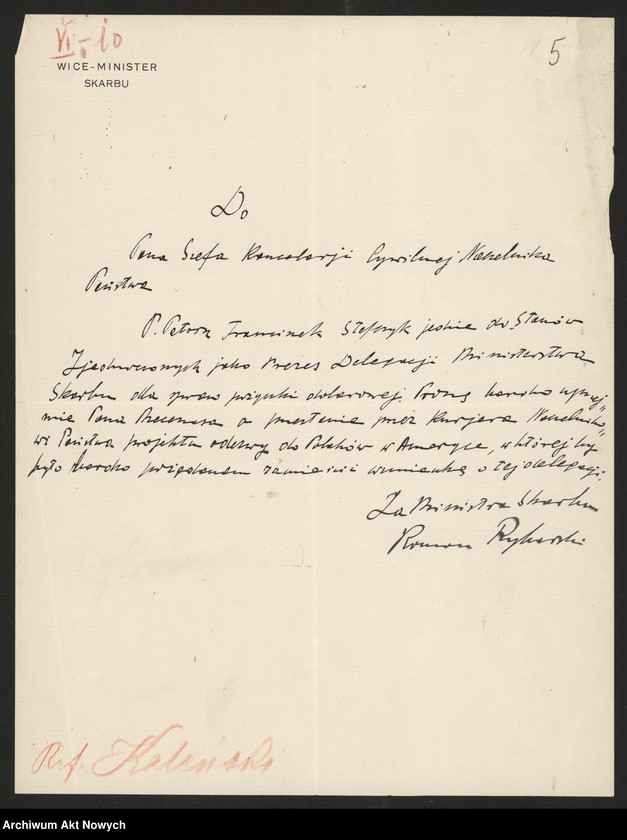 VI-10
5
WICE-MINISTER
SKARBU
Do
Pana Szefa Kancelarji Cywilnej Naczelnika
Państwa
P. Patron Franciszek Stefczyk jedzie do Stanów
Zjednoczonych jako Prezes Delegacji Ministerstwa
Skarbu dla spraw pożyczki dolarowej. Proszę bardzo uprzej
mie Pana Mecenasa o przesłanie przez kurjera Naczelniko„
wi Państwa projektu odezwy do Polaków w Ameryce, w której by
było bardzo pożądanem zamieścić wzmiankę o tej delegacji.
Za Ministra Skarbu
Roman Rybarski
Ref. Kaleński
Archiwum Akt Nowych